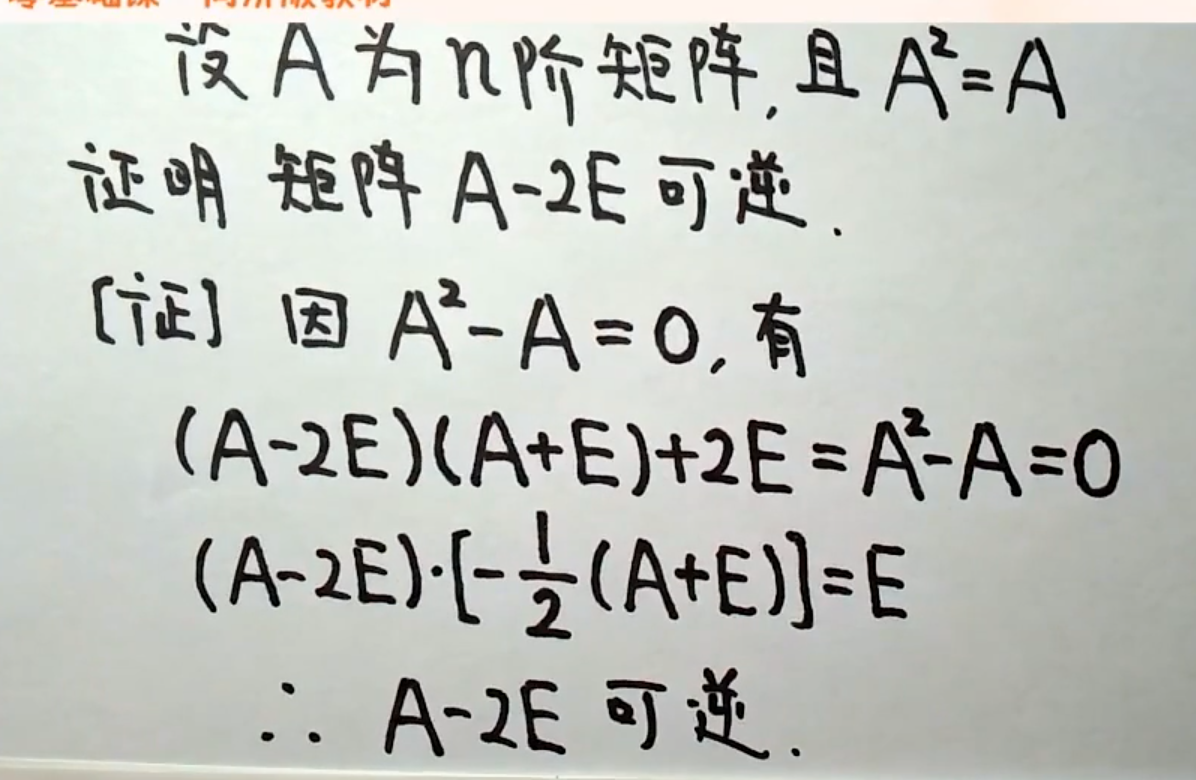 设 A 为 n 阶矩阵, 且 A²=A
证明 矩阵 A-2E 可逆.
[证] 因 A²-A=0, 有
(A-2E)(A+E)+2E=A²-A=0
(A-2E)·[-1/2(A+E)]=E
∴ A-2E 可逆.